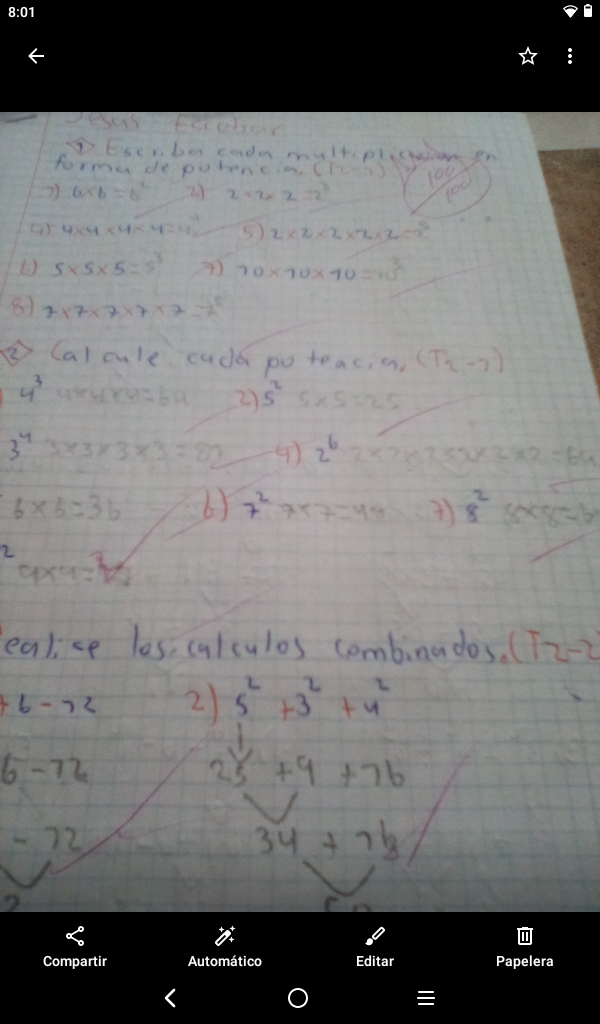 8:01
Jesus Escobar
1 Escriba cada multiplicacion en
forma de potencia. (T2-1)
100/100
1) 6x6=6² 2) 2x2x2=2³
4x4x4x4=4⁴ 5) 2x2x2x2x2=2⁵
6) 5x5x5=5³ 7) 10x10x10=10³
8) 7x7x7x7x7=7⁵
2 Calcule cada potencia. (T2-1)
4³ 4x4x4=64 2) 5² 5x5=25
3⁴ 3x3x3x3=81 4) 2⁶ 2x2x2x2x2x2=64
6x6=36 6) 7² 7x7=49 7) 8² 8x8=6
2 9x9=
ealice los calculos combinados. (T2-2
+6-12 2) 5² +3² +4²
6-12 25 +9 +16
-12 34 + 16
Compartir
Automático
Editar
Papelera